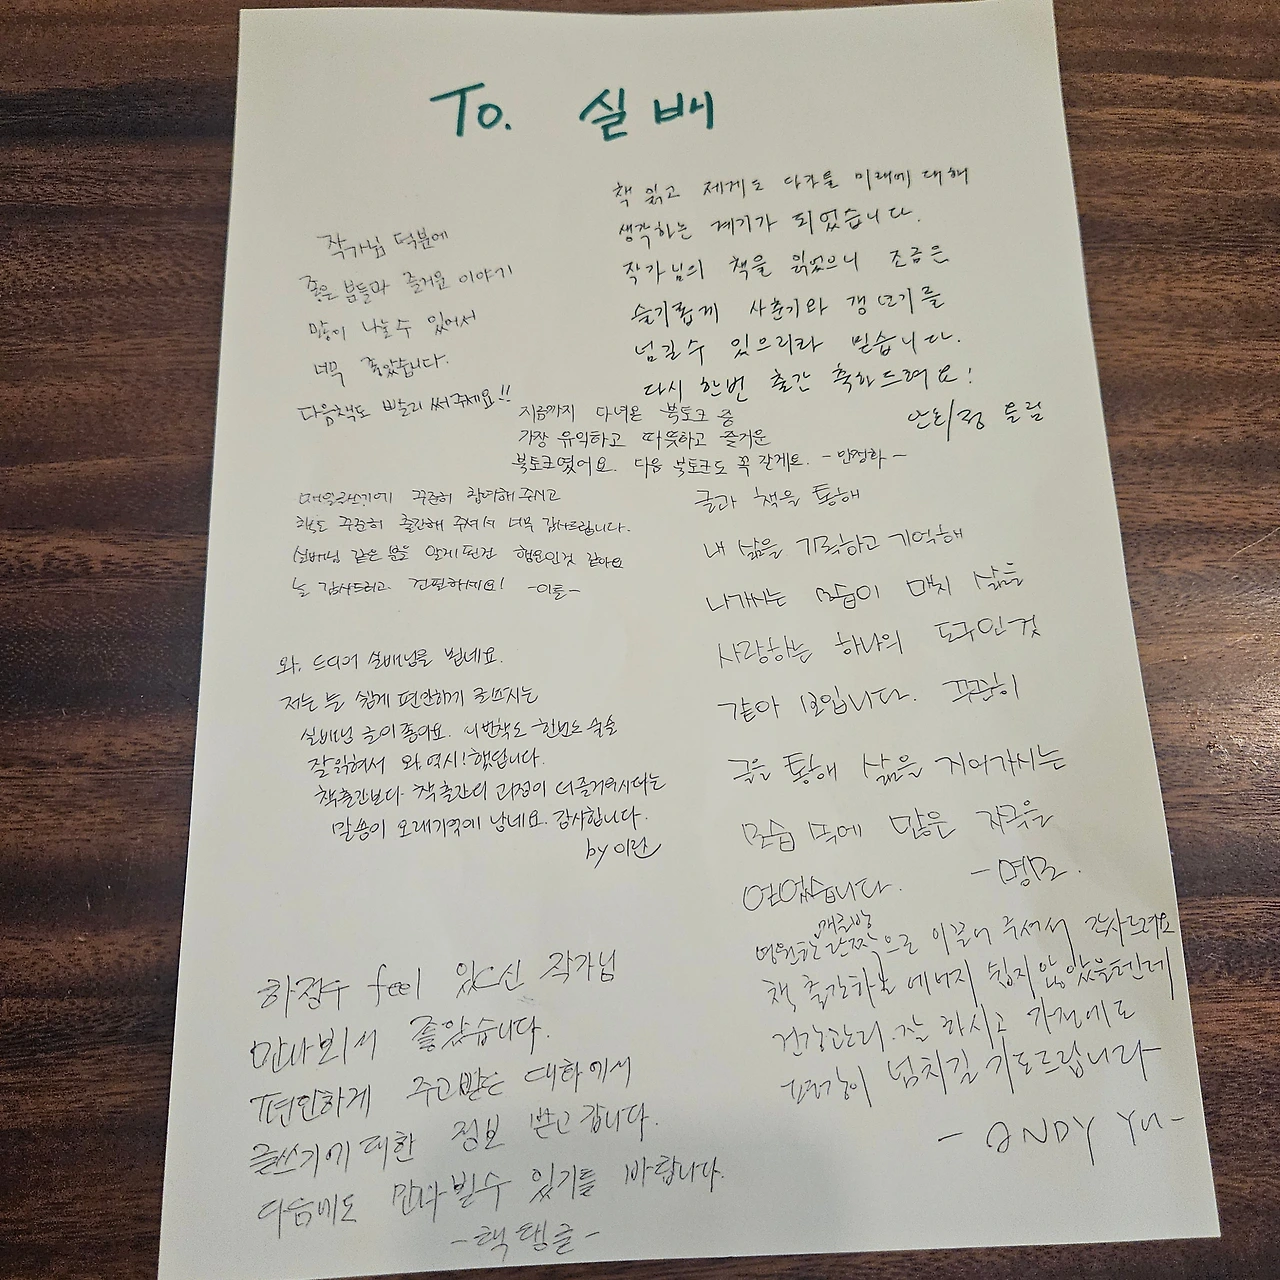 To. 실배
작가님 덕분에
좋은 분들과 즐거운 이야기
많이 나눌 수 있어서
너무 좋았습니다.
다음책도 빨리 써주세요!!
책 읽고 제게도 다가올 미래에 대해
생각하는 계기가 되었습니다.
작가님의 책을 읽었으니 조금은
슬기롭게 사춘기와 갱년기를
넘길 수 있으리라 믿습니다.
다시 한번 출간 축하드려요!
안희정 드림
지금까지 다녀온 북토크 중
가장 유익하고 따뜻하고 즐거운
북토크였어요. 다음 북토크도 꼭 갈게요. -안정화-
매일글쓰기에 꾸준히 참여해 주시고
책도 꾸준히 출간해 주셔서 너무 감사드립니다.
실배님 같은 분을 알게된건 행운인것 같아요
늘 감사드리고 건필하세요! -이틀-
와, 드디어 실배님을 뵙네요.
저는 늘 쉽게 편안하게 글쓰시는
실배님 글이 좋아요. 이번책도 한번도 술술
잘읽혀서 와, 역시! 했답니다.
책출간보다 책출간의 과정이 더 즐거우시다는
말씀이 오래기억에 남네요. 감사합니다.
by 이란
글과 책을 통해
내 삶을 기록하고 기억해
나가시는 모습이 마치 삶을
사랑하는 하나의 도구인 것
같아 보입니다. 꾸준히
글을 통해 삶을 지어가시는
모습 속에 많은 자극을
얻었습니다. -명모.
하정우 feel 있으신 작가님
만나봬서 좋았습니다.
편안하게 주고받는 대화에서
글쓰기에 대한 정보 받고 갑니다.
다음에도 만나뵐수 있기를 바랍니다.
영원한 글짱으로 이끌어 주셔서 감사드려요
책 출간하는 에너지 쉽지 않았을텐데
건강관리 잘 하시고 가정에도
평강이 넘치길 기도드립니다
- ANDY YU -